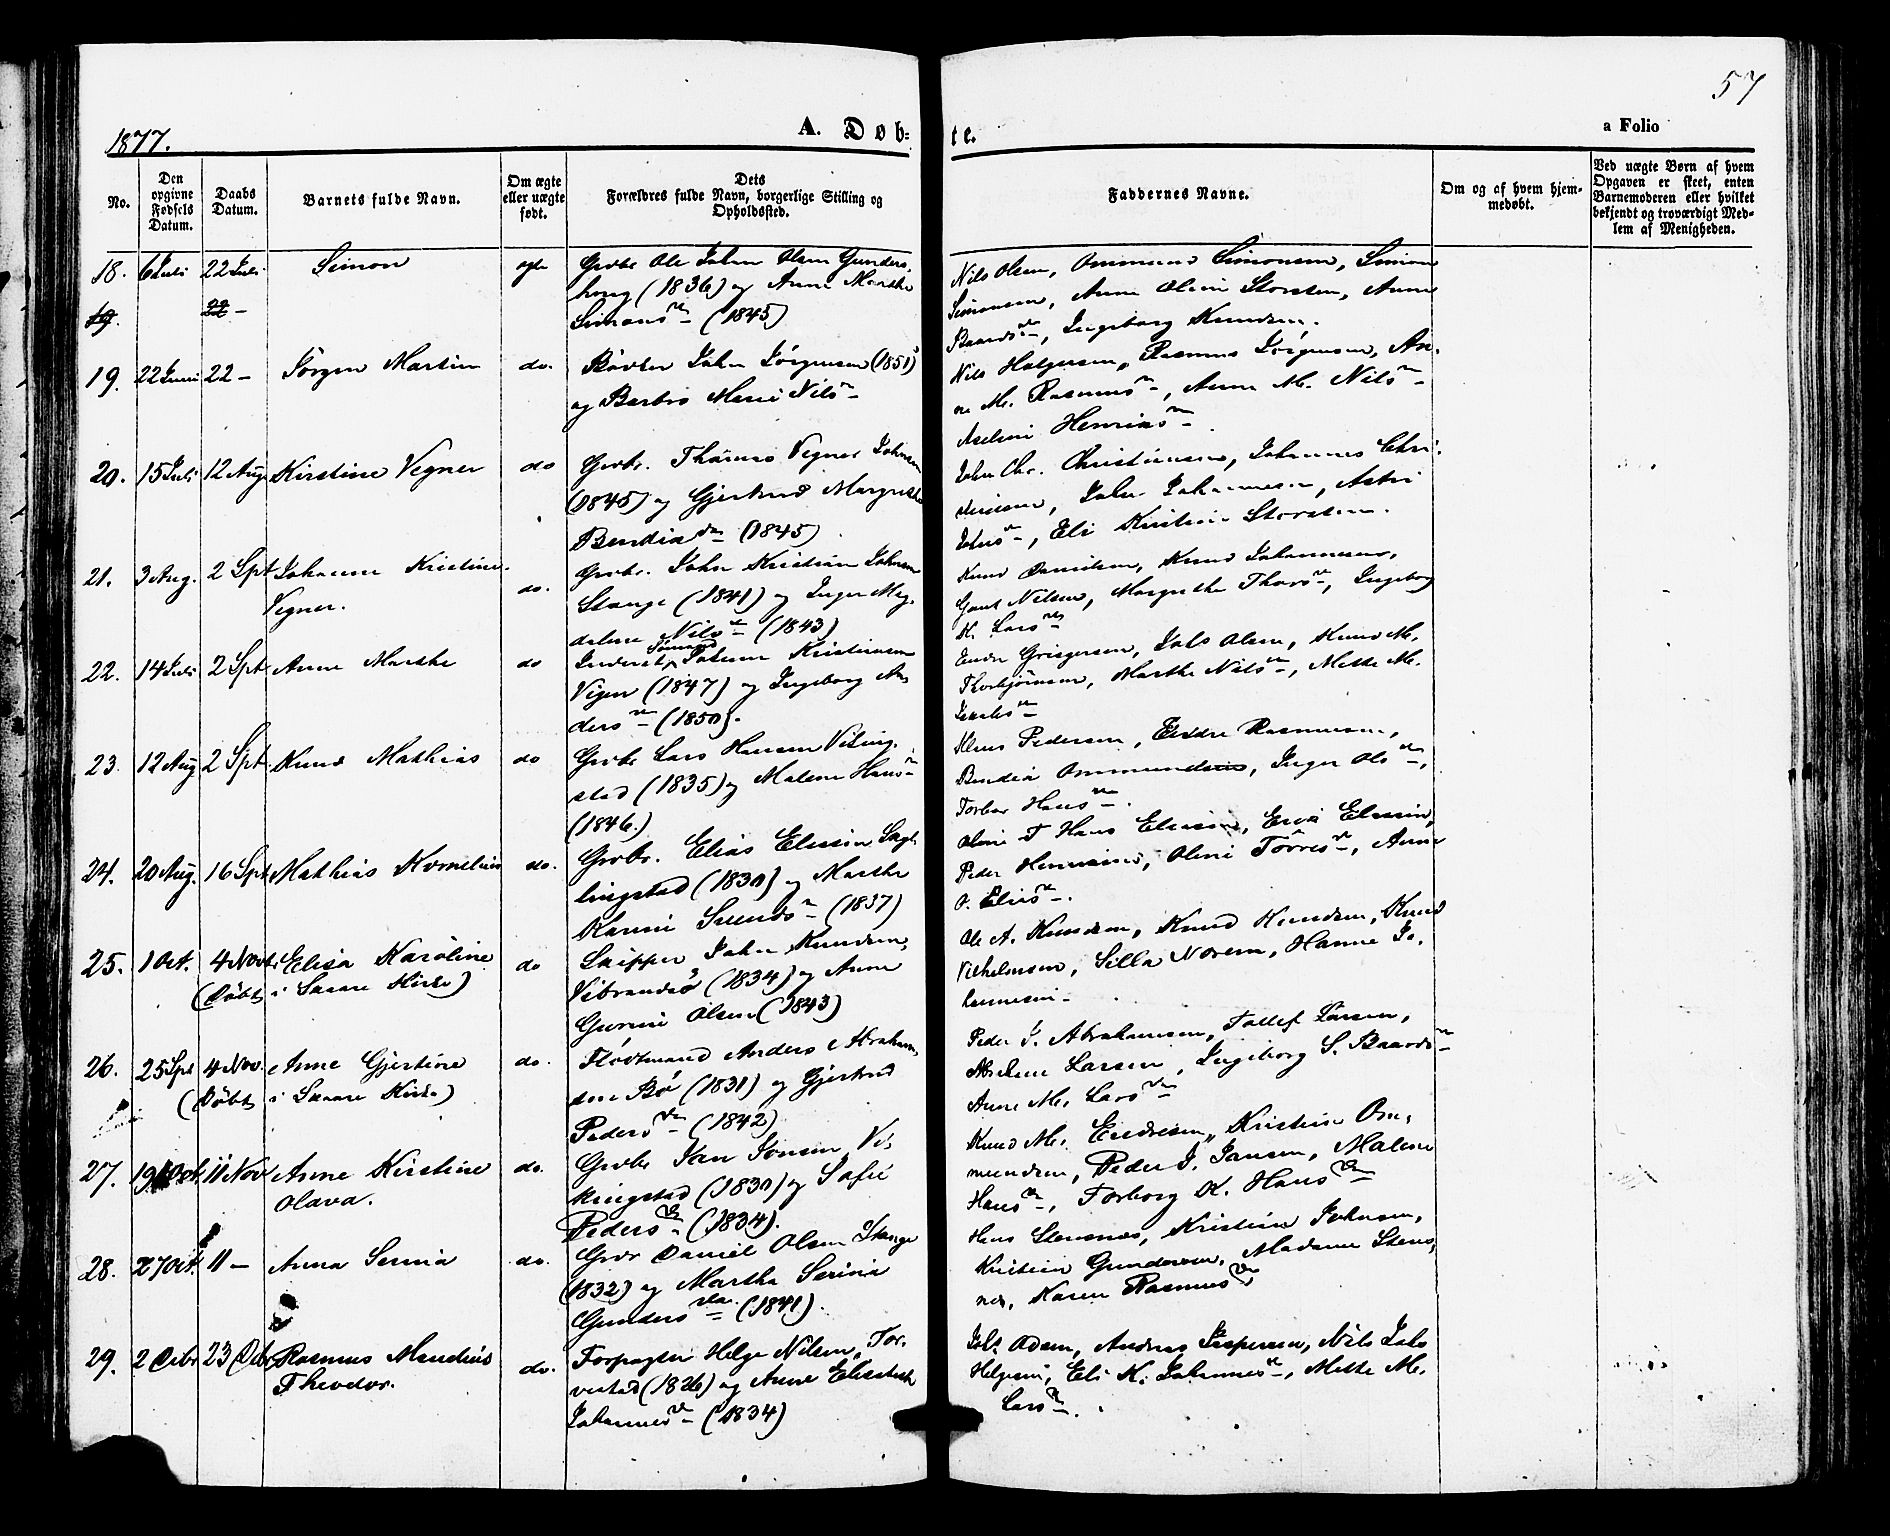 57
1877.
A. Døb-
te.
a Folio
No.
Den opgivne Fødsels Datum.
Daabs Datum.
Barnets fulde Navn.
Om ægte eller uægte født.
Dets Forældres fulde Navn, borgerlige Stilling og Opholdssted.
Faddernes Navne.
Om og af hvem hjem-
medøbt.
Ved uægte Børn af hvem
Opgaven er skeet, enten
Barnemoderen eller hvilket
bekjendt og troværdigt Med-
lem af Menigheden.
18. 6 Juli 22 Juli Simon ægte
Grbr. Ole Johan Olsen Gunders-
houg (1836) og Anne Marthe
Simons (1845)
Nils Olsen, Ommund Simonsen, Simon
Simonsen, Anne Oline Storsten, Anne
Baards, Ingeborg Knudsen.
19.
19. 22 Juni 22 – Jørgen Martin do.
John Jørgensen (1851)
og Barbro Marie Nils
Nils Halgersen, Rasmus Jørgensen, An-
ne M. Rasmus, Anne M. Nils
Henriks
20. 15 Juli 12 Aug Kirstine Vegner do
Grbr. Thomas Vegner Johnsen
(1845) og Gjertrud Margrethe
Bendix (1845)
John Chr. Christiansen, Johannes Chri-
stensen, John Johannesen, Astri
Johns, Eli Kristine Storsten.
21. 3 Aug. 2 Spt Johanne Kristine do.
Vegner.
Grbr. John Kristian Johnsen
Stange (1841) og Inger Mag-
dalene Nils (1843)
Knud Danielsen, Knud Johannesen,
Gaut Nilsen, Margrethe Thors, Ingeborg
K. Lars
22. 14 Juli 2 Spt Anne Marthe do
Inderst, Johan Kristiansen
(1847) og Ingeborg An-
ders (1850).
Endre Grisgersen, Olsen, Knud M.
Thorbjørnsen, Marthe Nils, Mette M.
23. 12 Aug 2 Spt Knud Mathias do
Grbr Lars Hansen Viking-
stad (1835) og Malene Hans
(1846.)
Klaus Pedersen, Endre Rasmussen,
Bendix Ommundsen, Inger Ols,
Torbor Hans.
24. 20 Aug. 16 Spt Mathias Kornelius do.
Grbr. Elias Eliassen
lingstad (1830) og Marthe
Karine Svends (1837)
Hans Eliassen, Eliassen,
Peder Henriksen, Oline Tørres, Anne
O. Elias.
25. 1 Oct. 4 Novbr Elisa Karoline do
(Døbt i Skaare Kirke)
Skipper John Knudsen
Vibrandsø (1834) og Anne
Gurine Olsen (1843)
Ole A. Knudsen, Knud Knudsen, Knud
Vilhelmsen, Silla Norem, Hanne Jo-
hannesen
26. 25 Spt 4 Nov. Anne Gjertine do.
(Døbt i Skaare Kirke)
Flødtmand Anders Abraham-
sen Bø (1831) og Gjertrud
Peders (1842)
Peder J. Abrahamsen, Tollef Larsen,
Larsen, Ingeborg S. Baards
Anne M. Lars
27. 19 Oct. 11 Nov Anne Kirstine do.
Olava.
Grbr Jan Jonsen Vi-
kingstad (1830) og Sofie
Peders (1834).
Knud M. Endresen, Kristian Om-
mundsen, Peder J. Jansen, Malene
Hans, Torborg K. Hans
28. 27 Oct. 11 – Anna Serina do.
Grbr Daniel Olsen Stange
(1832) og Martha Serina
Gunders (1841).
Hans Stensnes, Kristian Johnsen,
Kristian Gundersen, Madame Stens-
nes, Karen Rasmus
29. 2 Octbr 23 Rasmus Mandius do.
Theodor.
Forpagter Helge Nilsen Tor-
vestad (1826) og Anne Elisabeth
Johannes (1834)
Odsen, Andreas Jespersen, Nils
Helgesen, Eli K. Johannes, Mette M.
Lars.